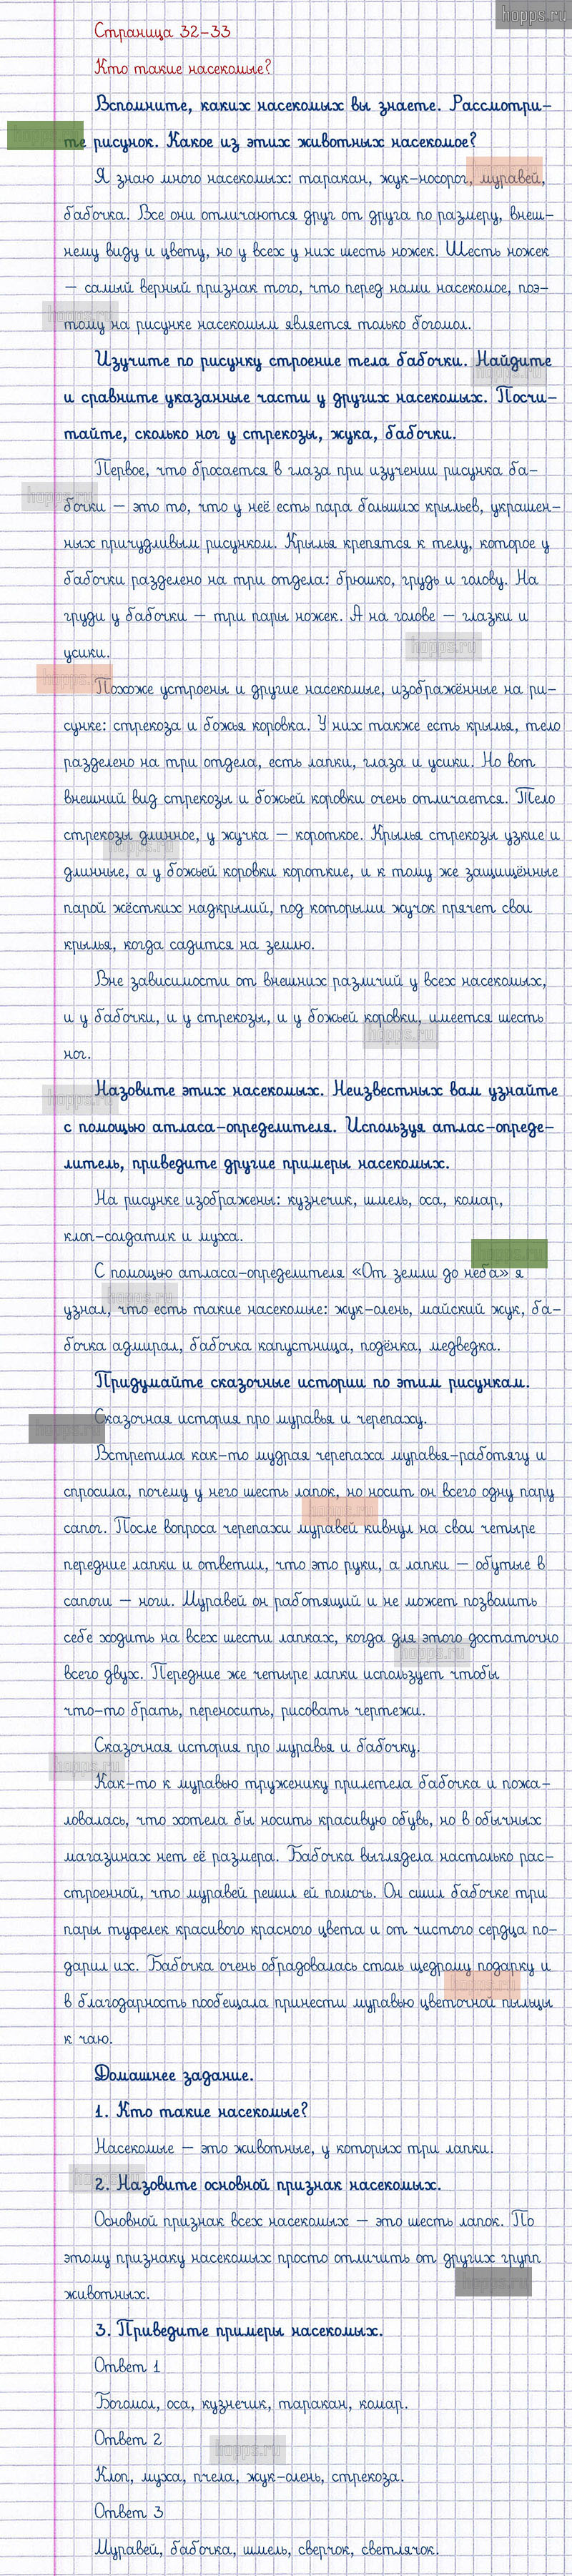 hopps.ru
Страница 32-33
Кто такие насекомые?
Вспомните, каких насекомых вы знаете. Рассмотри-
те рисунок. Какое из этих животных насекомое?
Я знаю много насекомых: таракан, жук-носорог, муравей,
бабочка. Все они отличаются друг от друга по размеру, внеш-
нему виду и цвету, но у всех у них шесть ножек. Шесть ножек
– самый верный признак того, что перед нами насекомое, поэ-
тому на рисунке насекомым является только богомол.
Изучите по рисунку строение тела бабочки. Найдите
и сравните указанные части у других насекомых. Посчи-
тайте, сколько ног у стрекозы, жука, бабочки.
Первое, что бросается в глаза при изучении рисунка ба-
бочки – это то, что у неё есть пара больших крыльев, украшен-
ных причудливым рисунком. Крылья крепятся к телу, которое у
бабочки разделено на три отдела: брюшко, грудь и голову. На
груди у бабочки – три пары ножек. А на голове – глазки и
усики.
Похоже устроены и другие насекомые, изображённые на ри-
сунке: стрекоза и божья коровка. У них также есть крылья, тело
разделено на три отдела, есть лапки, глаза и усики. Но вот
внешний вид стрекозы и божьей коровки очень отличается. Тело
стрекозы длинное, у жучка – короткое. Крылья стрекозы узкие и
длинные, а у божьей коровки короткие, и к тому же защищённые
парой жёстких надкрылий, под которыми жучок прячет свои
крылья, когда садится на землю.
Вне зависимости от внешних различий у всех насекомых,
и у бабочки, и у стрекозы, и у божьей коровки, имеется шесть
ног.
Назовите этих насекомых. Неизвестных вам узнайте
с помощью атласа-определителя. Используя атлас-опреде-
литель, приведите другие примеры насекомых.
На рисунке изображены: кузнечик, шмель, оса, комар,
клоп-солдатик и муха.
С помощью атласа-определителя «От земли до неба» я
узнал, что есть такие насекомые: жук-олень, майский жук, ба-
бочка адмирал, бабочка капустница, подёнка, медведка.
Придумайте сказочные истории по этим рисункам.
Сказочная история про муравья и черепаху.
Встретила как-то мудрая черепаха муравья-работягу и
спросила, почему у него шесть лапок, но носит он всего одну пару
сапог. После вопроса черепахи муравей кивнул на свои четыре
передние лапки и ответил, что это руки, а лапки – обутые в
сапоги – ноги. Муравей он работящий и не может позволить
себе ходить на всех шести лапках, когда для этого достаточно
всего двух. Передние же четыре лапки использует чтобы
что-то брать, переносить, рисовать чертежи.
Сказочная история про муравья и бабочку.
Как-то к муравью труженику прилетела бабочка и пожа-
ловалась, что хотела бы носить красивую обувь, но в обычных
магазинах нет её размера. Бабочка выглядела настолько рас-
строенной, что муравей решил ей помочь. Он сшил бабочке три
пары туфелек красивого красного цвета и от чистого сердца по-
дарил их. Бабочка очень обрадовалась столь щедрому подарку и
в благодарность пообещала принести муравью цветочной пыльцы
к чаю.
Домашнее задание.
1. Кто такие насекомые?
Насекомые – это животные, у которых три лапки.
2. Назовите основной признак насекомых.
Основной признак всех насекомых – это шесть лапок. По
этому признаку насекомых просто отличить от других групп
животных.
3. Приведите примеры насекомых.
Ответ 1
Богомол, оса, кузнечик, таракан, комар.
Ответ 2
Клоп, муха, пчела, жук-олень, стрекоза.
Ответ 3
Муравей, бабочка, шмель, сверчок, светлячок.